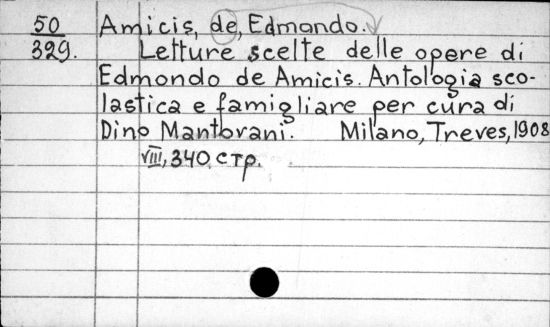 50 Amicis, de, Edmondo.
329. Letture scelte delle opere di
Edmondo de Amicis. Antologia sco-
lastica e famigliare per cura di
Dino Mantovani. Milano, Treves, 1908
VIII, 340 стр.